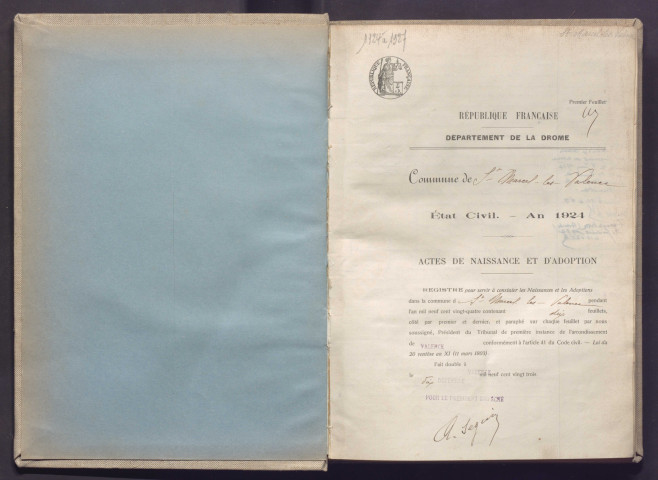 1924 à 1927
RÉPUBLIQUE FRANÇAISE
Premier Feuillet
RÉPUBLIQUE FRANÇAISE
DÉPARTEMENT DE LA DROME
Commune de St Marcel-les-Valence
État Civil. — An 1924
ACTES DE NAISSANCE ET D'ADOPTION
REGISTRE pour servir à constater les Naissances et les Adoptions
dans la commune d St Marcel les Valence pendant
l'an mil neuf cent vingt-quatre contenant dix feuillets,
côté par premier et dernier, et paraphé sur chaque feuillet par nous
soussigné, Président du Tribunal de première instance de l'arrondissement
de VALENCE conformément à l'article 41 du Code civil. — Loi du
20 ventôse an XI (11 mars 1803)
Fait double à
le mil neuf cent vingt trois
POUR LE PRÉSIDENT